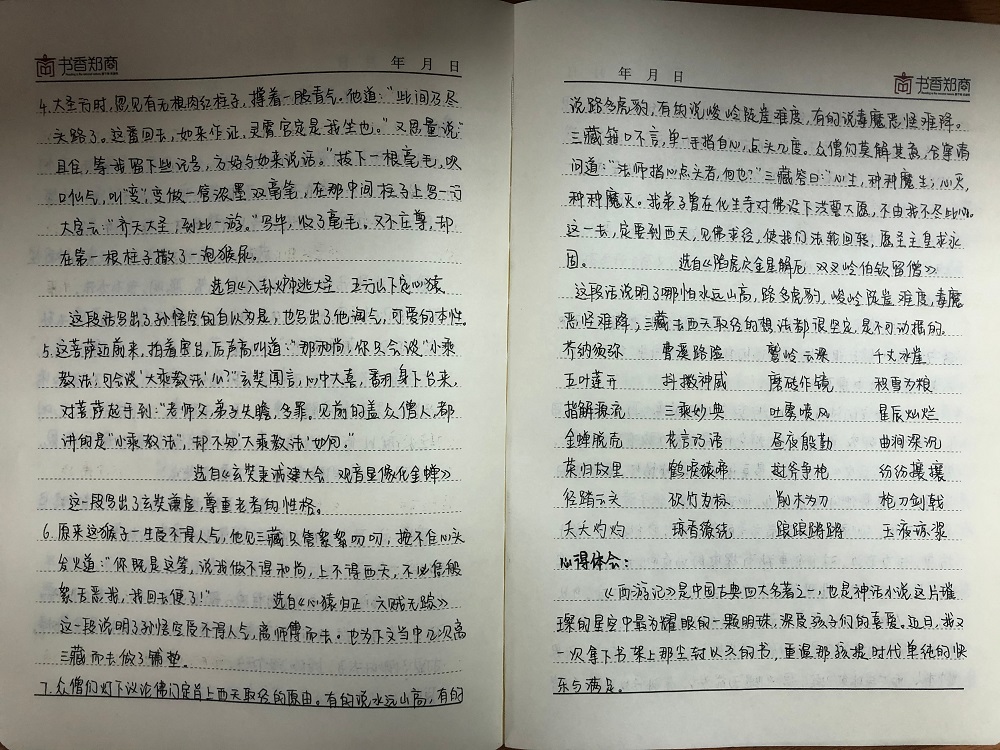 书香郑商
年 月 日
4.大圣行时,忽见有五根肉红柱子,撑着一股青气。他道:"此间乃尽
头路了。这番回去,如来作证,灵霄宫定是我坐也。"又思量说"
且住,等我留下些记号,方好与如来说话。"拔下一根毫毛,吹
口仙气,叫"变",变做一管浓墨双毫笔,在那中间柱子上写一行
大字云:"齐天大圣,到此一游。"写毕,收了毫毛。又不庄尊,却
在第一根柱子撒了一泡猴尿。
选自《八卦炉中逃大圣 五行山下定心猿
这段话写出了孙悟空的自以为是,也写出了他淘气,可爱的本性。
5.这菩萨近前来,拍着宝台,厉声高叫道:"那和尚,你只会谈"小乘
教法',可会谈'大乘教法'么?"玄奘闻言,心中大喜,翻身下台来,
对菩萨起手到:"老师父,弟子失瞻,多罪,见前的盖众僧人,都
讲的是"小乘教法",却不知'大乘教法'如何。"
选自《玄奘秉诚建大会 观音显像化金蝉》
这一段写出了玄奘谦虚,尊重老者的性格。
6.原来这猴子一生受不得人气,他见三藏只管絮絮叨叨,按不住心头
火道:"你既是这等,说我做不得和尚,上不得西天,不必恁般
絮舌恶我,我回去便了!" 选自《心猿归正 六贼无踪》
这一段说明了孙悟空受不得人气,离师傅而去。也为下文当中几次离
三藏而去做了铺垫。
7.众僧们灯下议论佛门定旨上西天取经的原由。有的说水远山高,有的
年 月 日
书香郑商
说路多虎豹,有的说峻岭陡崖难度,有的说毒魔恶怪难降。
三藏箝口不言,单一手指自心,点头几度。众僧们莫解其意,合掌请
问道:"法师指心点头者,何也?"三藏答曰:"心生,种种魔生;心灭,
种种魔灭。我弟子曾在化生寺对佛设下洪誓大愿,不由我不尽此心。
这一去,定要到西天,见佛求经,使我们法轮回转,愿圣主皇求永
固。 选自《陷虎穴金星解厄 双叉岭伯钦留僧》
这段话说明了哪怕水远山高,路多虎豹,峻岭陡崖难度,毒魔
恶怪难降,三藏去西天取经的想法都很坚定,是不可动摇的。
芥纳须弥 曹溪路险 鹫岭云深 千丈冰崖
五叶莲开 抖擞神威 磨砖作镜 积雪为粮
指解源流 三乘妙典 吐雾喷风 星辰灿烂
金蝉脱壳 花言巧语 昼夜殷勤 曲涧深沉
荣归故里 鹤唳猿啼 挝斧争枪 纷纷攘攘
径踏云头 砍竹为标 削木为刀 枪刀剑戟
夭夭灼灼 琼香缭绕 踉踉跄跄 玉液琼浆
心得体会:
《西游记》是中国古典四大名著之一,也是神话小说这片璀
璨的星空中最为耀眼的一颗明珠,深受孩子们的喜爱。近日,我又
一次拿下书架上那尘封以久的书,重温那孩提时代单纯的快
乐与满足。